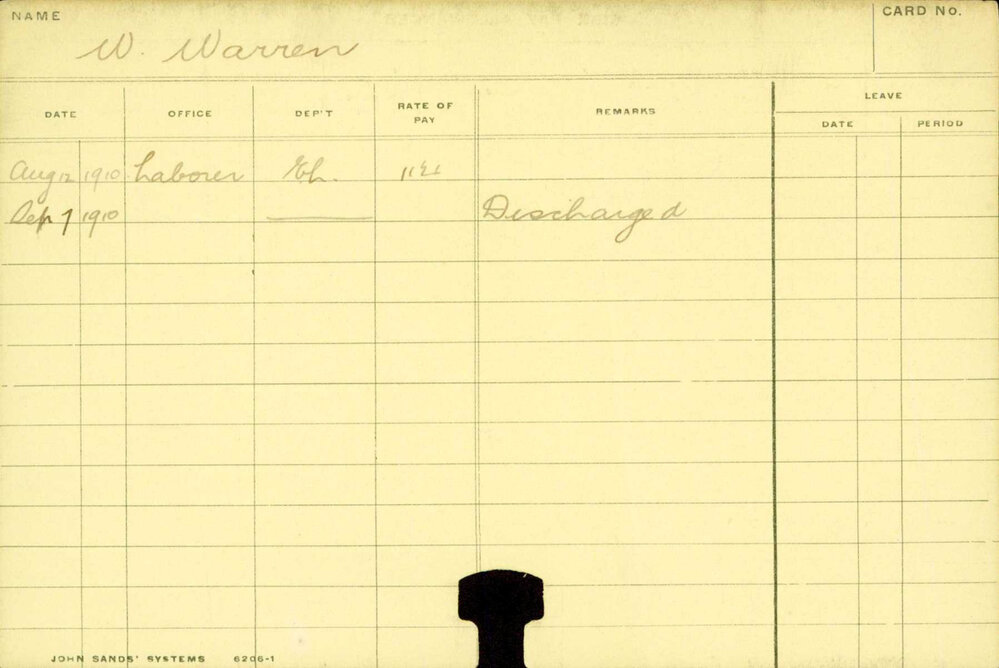 NAME
CARD No.
W. Warren
LEAVE
DATE OFFICE DEP'T RATE OF PAY REMARKS DATE PERIOD
Aug 12 1910 Laborer
Sep 7 1910 Discharged
JOHN SANDS' SYSTEMS 6206-1